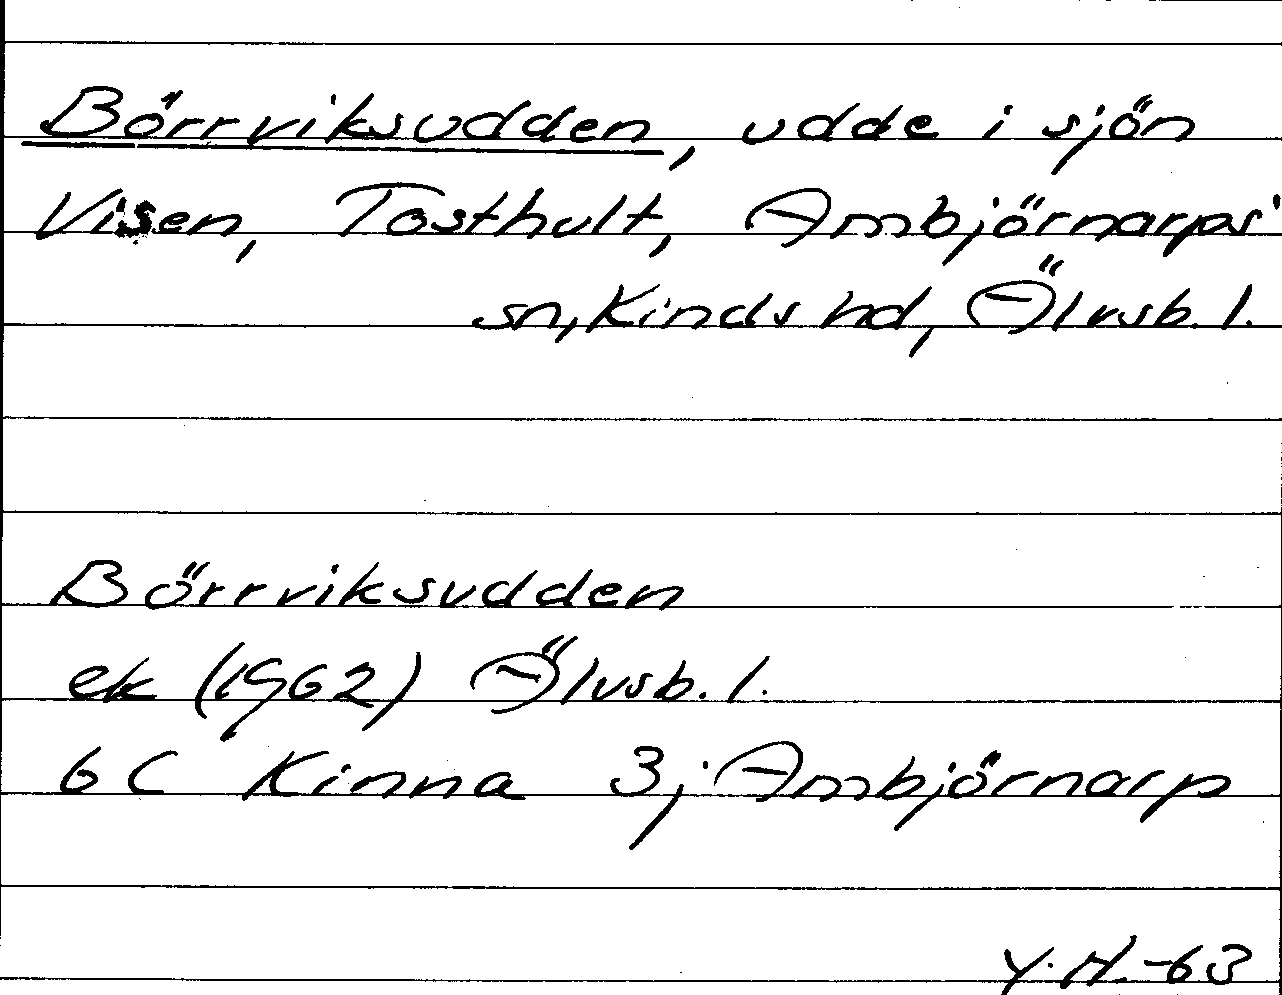 Börrviksudden, udde i sjön
Visen, Tosthult, Ambjörnarps
sn, Kinds hd, Älvsb. l.
Börrviksudden
ek (1962) Älvsb. l.
6 C Kinna 3j Ambjörnarp
Y. H. -63